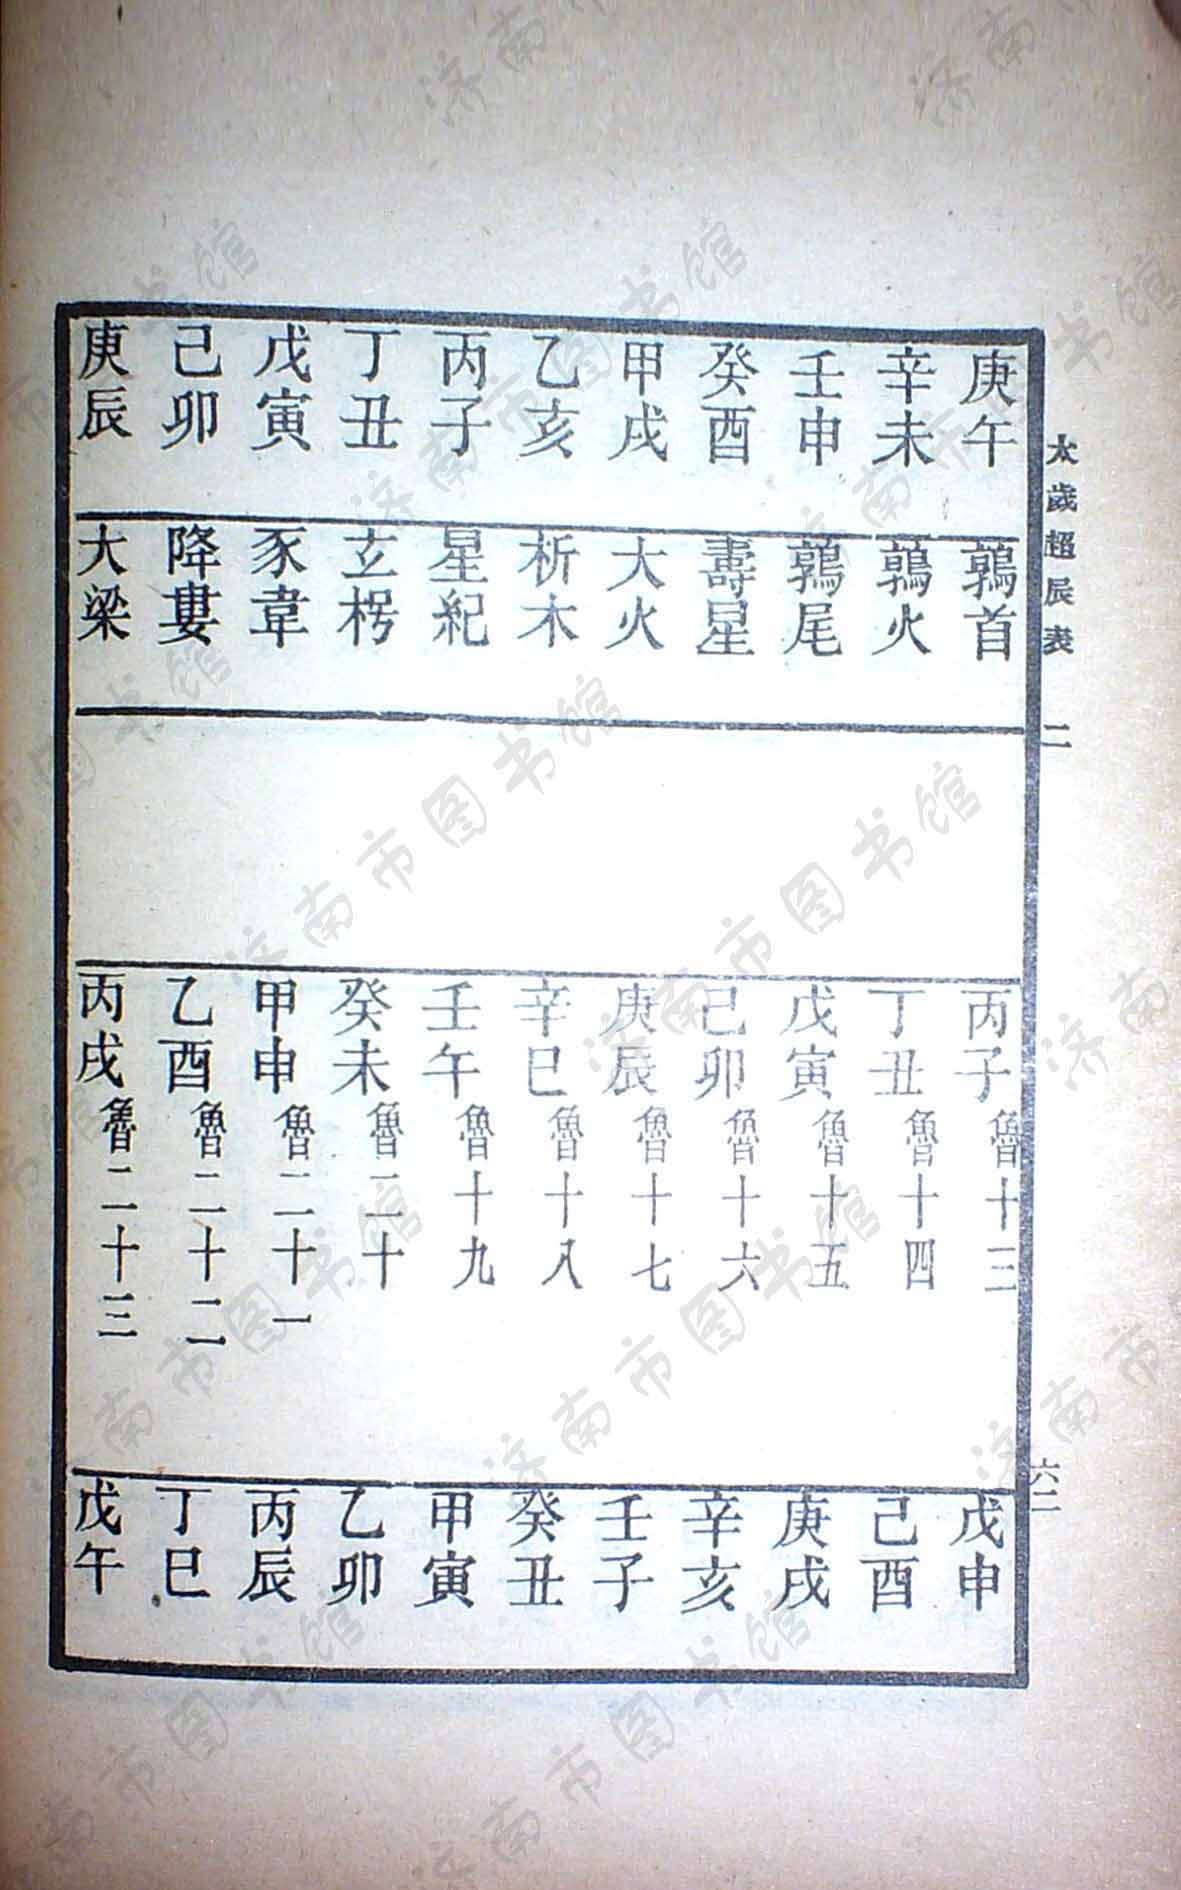 太歲超辰表 二 六二
庚午 鶉首 丙子魯十三 戊申
辛未 鶉火 丁丑魯十四 己酉
壬申 鶉尾 戊寅魯十五 庚戌
癸酉 壽星 己卯魯十六 辛亥
甲戌 大火 庚辰魯十七 壬子
乙亥 析木 辛巳魯十八 癸丑
丙子 星紀 壬午魯十九 甲寅
丁丑 玄枵 癸未魯二十 乙卯
戊寅 豕韋 甲申魯二十一 丙辰
己卯 降婁 乙酉魯二十二 丁巳
庚辰 大梁 丙戌魯二十三 戊午
济南市图书馆